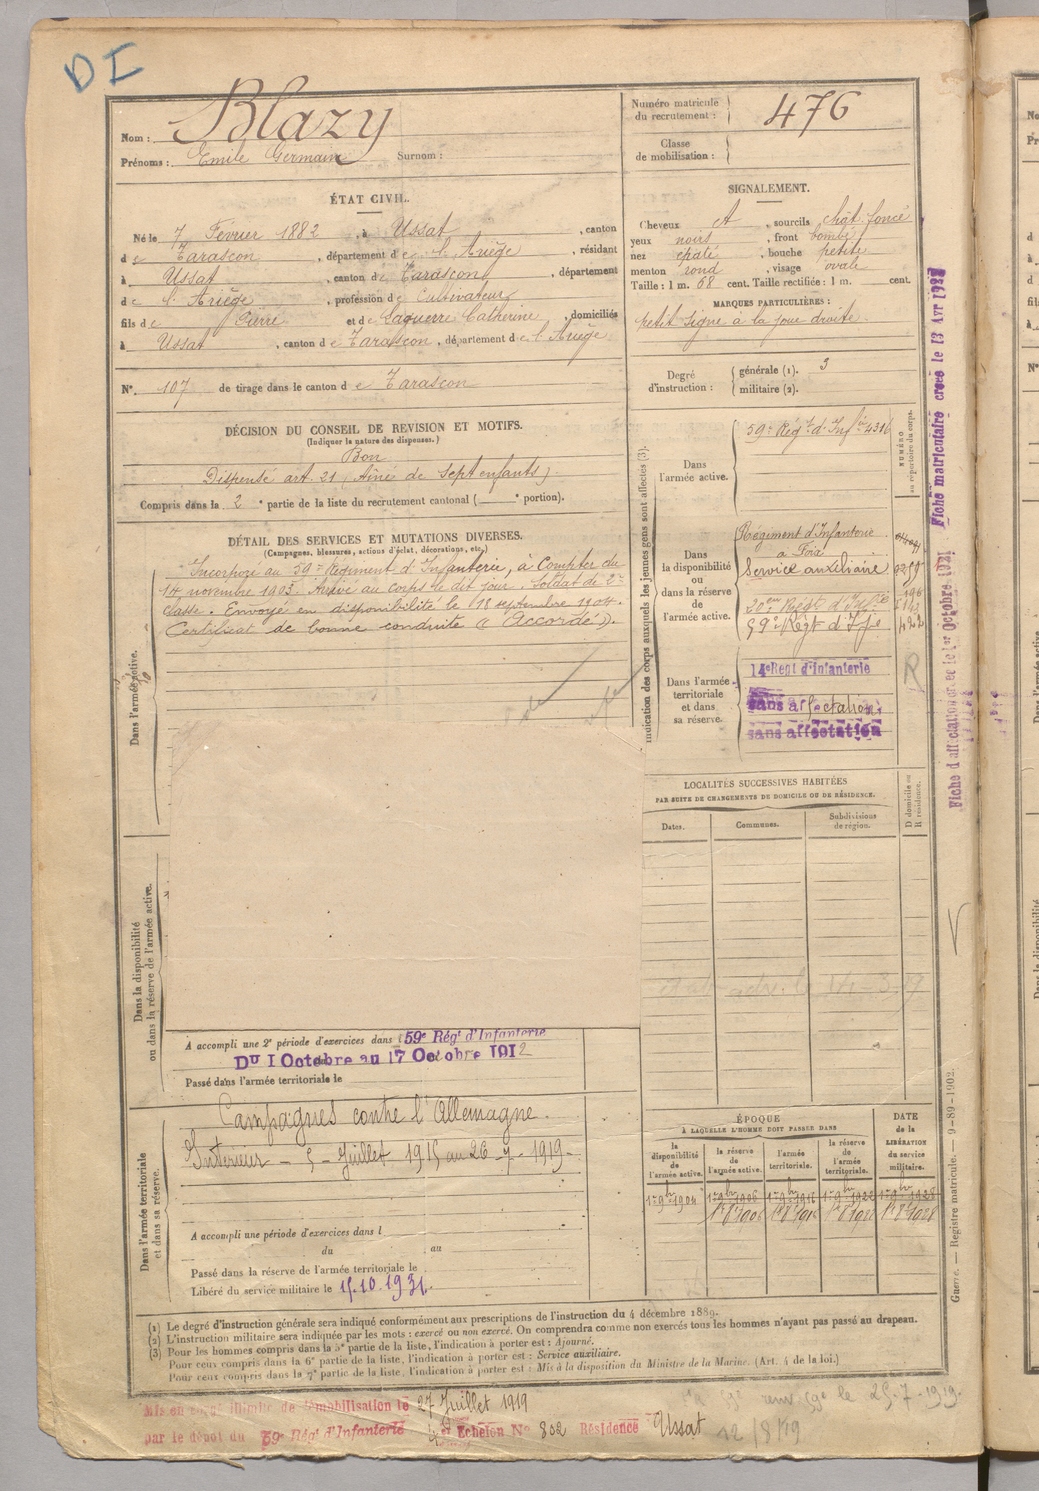 DI
Nom : Blazy
Prénoms : Emile Germain Surnom :
Numéro matricule du recrutement : 476
Classe de mobilisation :
ÉTAT CIVIL.
Né le 7 Février 1882, à Ussat, canton
de Tarascon, département de l'Ariège, résidant
à Ussat, canton de Tarascon, département
de l'Ariège, profession de Cultivateur
fils de Pierre et de Laguerre Catherine, domiciliés
à Ussat, canton de Tarascon, département de l'Ariège
N°. 107 de tirage dans le canton de Tarascon
SIGNALEMENT.
Cheveux et, sourcils chat. foncé
yeux noirs, front bombé
nez épaté, bouche petite
menton rond, visage ovale
Taille : 1 m. 68 cent. Taille rectifiée : 1 m. cent.
MARQUES PARTICULIÈRES :
petit signe à la joue droite
Degré d'instruction : générale (1). 3
militaire (2).
DÉCISION DU CONSEIL DE REVISION ET MOTIFS.
(Indiquer la nature des dispenses.)
Bon
Dispensé art. 21 (Ainé de sept enfants)
Compris dans la 2e partie de la liste du recrutement cantonal ( e portion).
DÉTAIL DES SERVICES ET MUTATIONS DIVERSES.
(Campagnes, blessures, actions d'éclat, décorations, etc.)
Dans l'armée active.
Incorporé au 59e Régiment d'Infanterie, à compter du
14 novembre 1903. Arrivé au corps le dit jour. Soldat de 2e
classe. Envoyé en disponibilité le 18 septembre 1904.
Certificat de bonne conduite « Accordé ».
Indication des corps auxquels les jeunes gens sont affectés (3).
NUMÉRO au répertoire du corps.
Dans l'armée active.
59e Régt d'Infie 4316
Dans la disponibilité ou dans la réserve de l'armée active.
Régiment d'Infanterie
à Foix
Service auxiliaire
59e Régt d'Ife
Dans l'armée territoriale et dans sa réserve.
14e Regt d'Infanterie
sans affectation
sans affectation
R
LOCALITÉS SUCCESSIVES HABITÉES
PAR SUITE DE CHANGEMENTS DE DOMICILE OU DE RÉSIDENCE.
Dates. Communes. Subdivisions de région. D domicile ou R résidence.
Dans la disponibilité ou dans la réserve de l'armée active.
A accompli une 2e période d'exercices dans l 59e Régt d'Infanterie
Du 1 Octobre au 17 Octobre 1912
Passé dans l'armée territoriale le
Dans l'armée territoriale et dans sa réserve.
Campagnes contre l'Allemagne.
Intérieur - 5 - Juillet 1915 au 26 - 7 - 1919 -
A accompli une période d'exercices dans l
du au
Passé dans la réserve de l'armée territoriale le
Libéré du service militaire le 15.10.1931.
ÉPOQUE
À LAQUELLE L'HOMME DOIT PASSER DANS
la disponibilité de l'armée active. la réserve de l'armée active. l'armée territoriale. la réserve de l'armée territoriale. DATE de la LIBÉRATION du service militaire.
1er 9bre 1904 1er 9bre 1906 1er 9bre 1916 1er 9bre 1922 1er 9bre 1928
(1) Le degré d'instruction générale sera indiqué conformément aux prescriptions de l'instruction du 4 décembre 1889.
(2) L'instruction militaire sera indiquée par les mots : exercé ou non exercé. On comprendra comme non exercés tous les hommes n'ayant pas passé au drapeau.
(3) Pour les hommes compris dans la 5e partie de la liste, l'indication à porter est : Ajourné.
Pour ceux compris dans la 6e partie de la liste, l'indication à porter est : Service auxiliaire.
Pour ceux compris dans la 7e partie de la liste, l'indication à porter est : Mis à la disposition du Ministre de la Marine. (Art. 4 de la loi.)
Mis en congé illimité de démobilisation le 27 Juillet 1919
par le dépôt du 59e Régt d'Infanterie 4e Echelon N° 802 Résidence Ussat
12/8/19
le 25-7-1919.
Guerre. — Registre matricule. — 9-89-1902.
Fiche matriculaire créée le 13 Avr 1927
Fiche d'affectation créée le 1er Octobre 1921